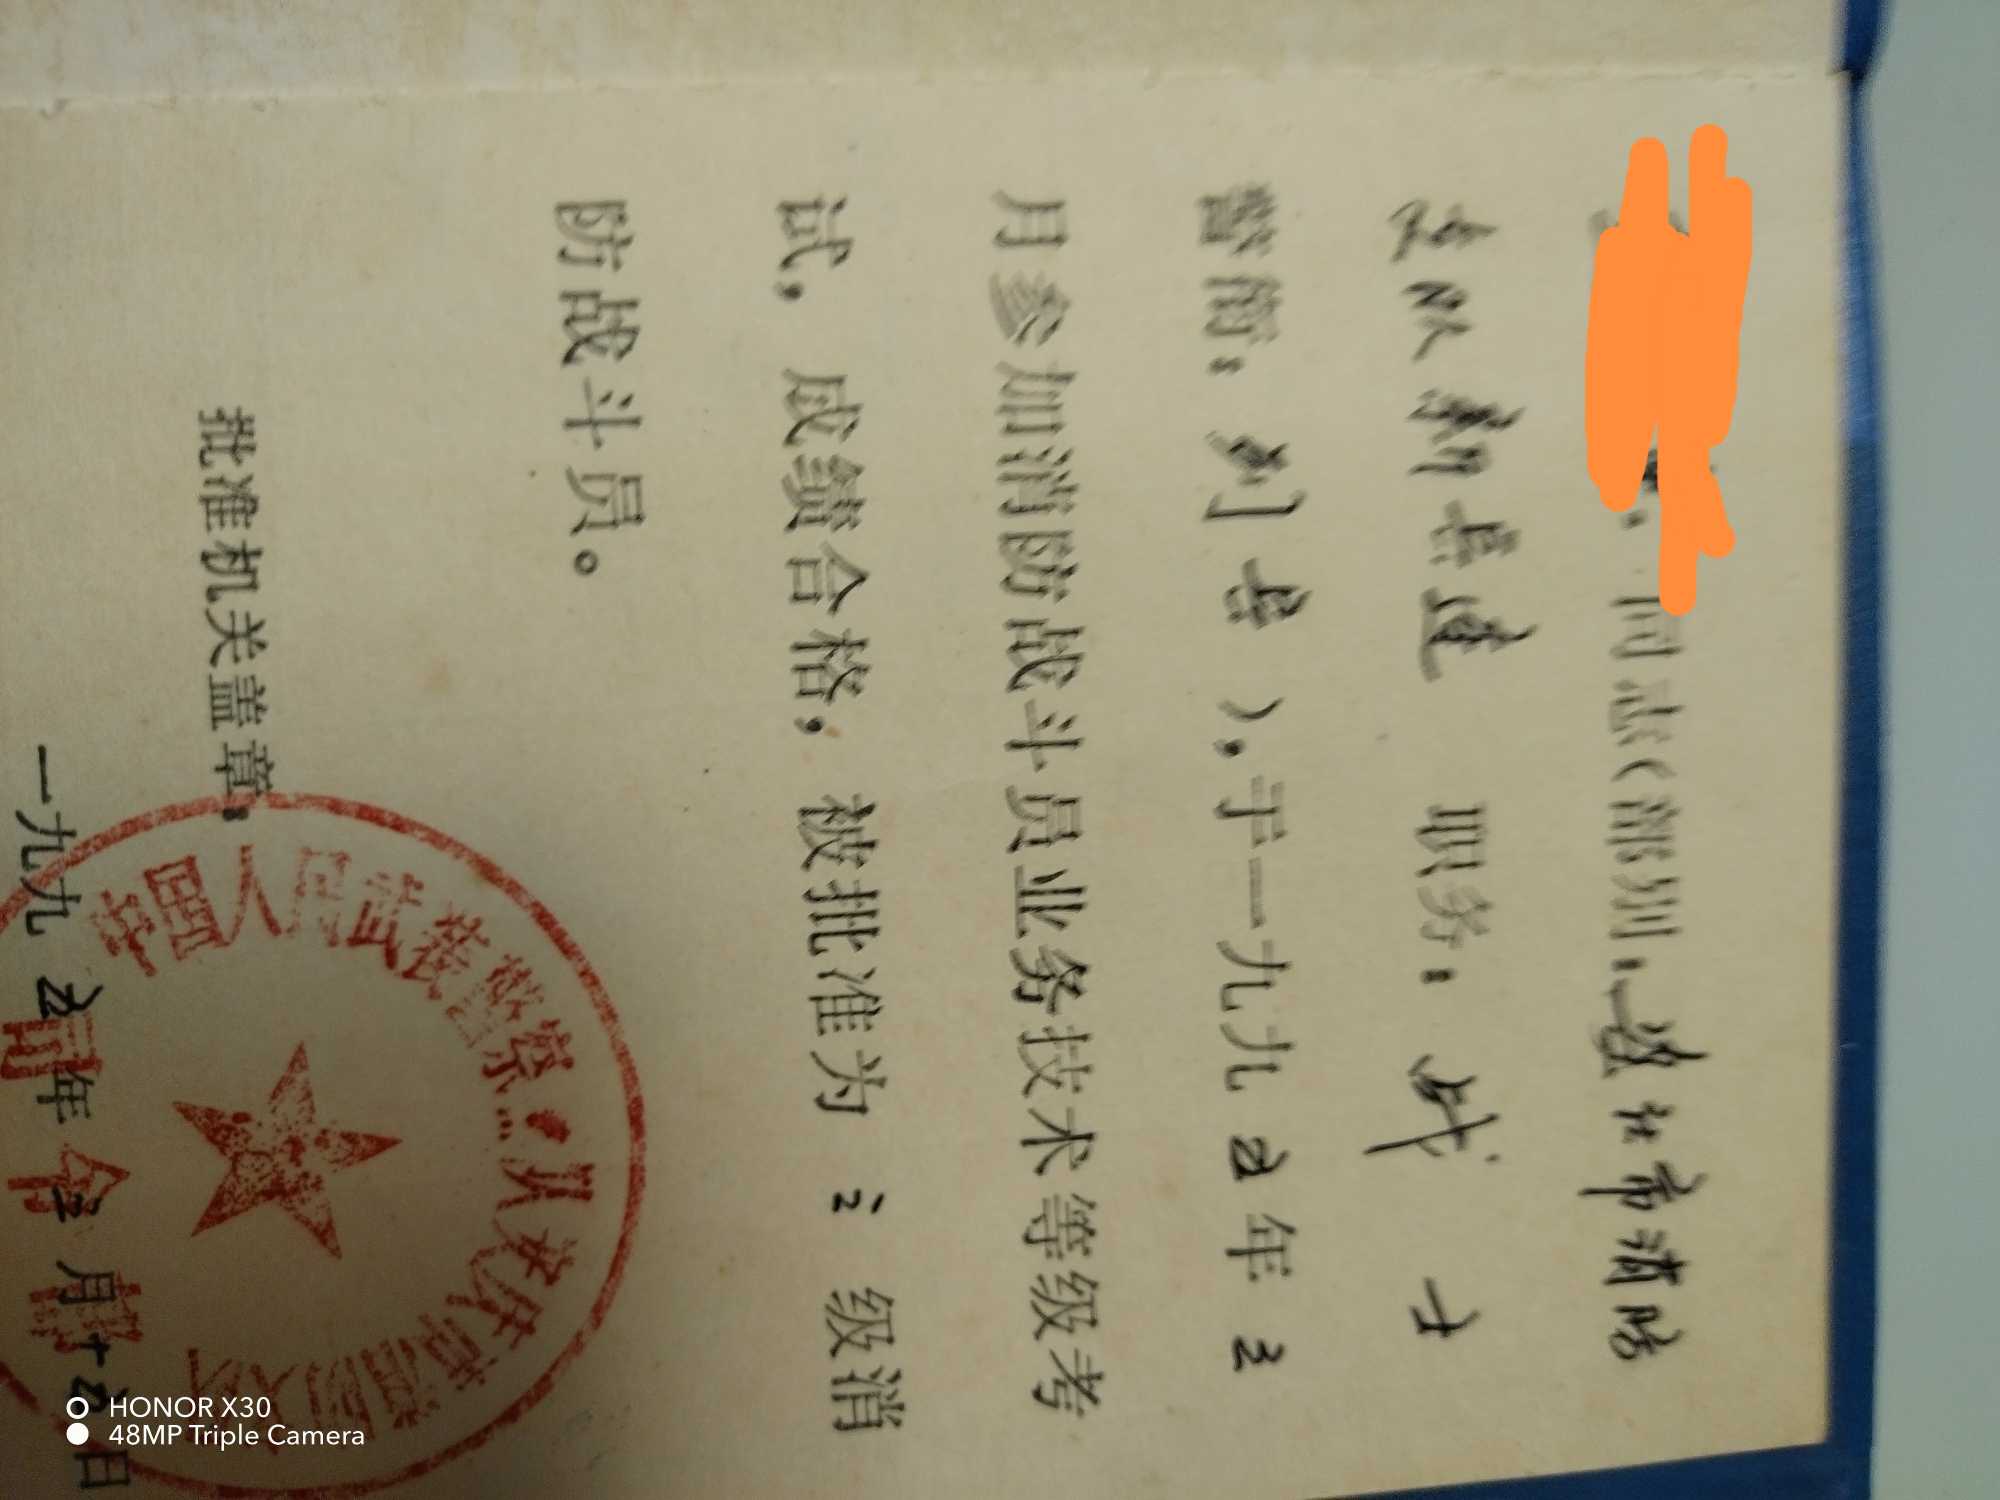 同志(部别:盘社市消防
支队新县连 职务:战士
警衔:列兵),于一九九五年三
月参加消防战斗员业务技术等级考
试,成绩合格,被批准为三级消
防战斗员。
批准机关盖章:
一九九五年三月十五日
中国人民武装警察
消防
HONOR X30
48MP Triple Camera